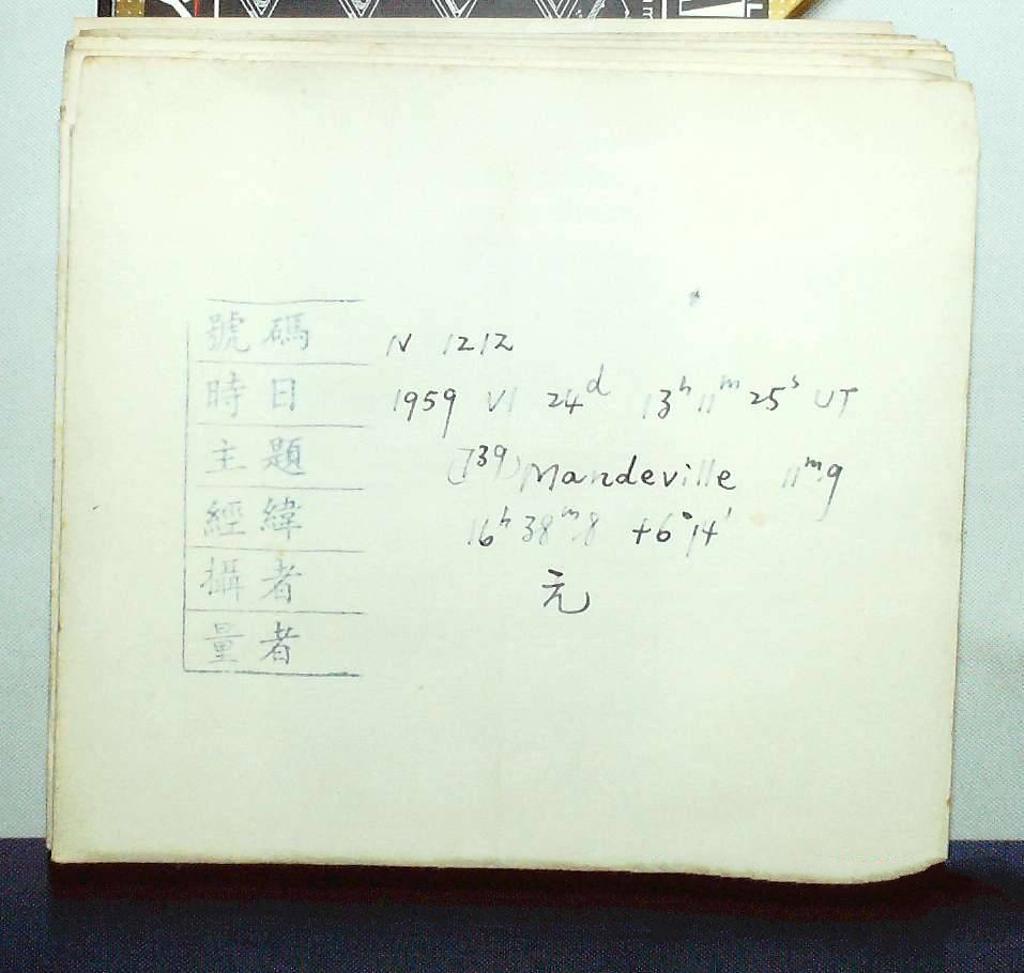 號碼 N 1212
時日 1959 VI 24ᵈ 13ʰ 11ᵐ 25ˢ UT
主題 (739) Mandeville 11ᵐ9
經緯 16ʰ 38ᵐ.8 +6°14'
攝者 元
量者